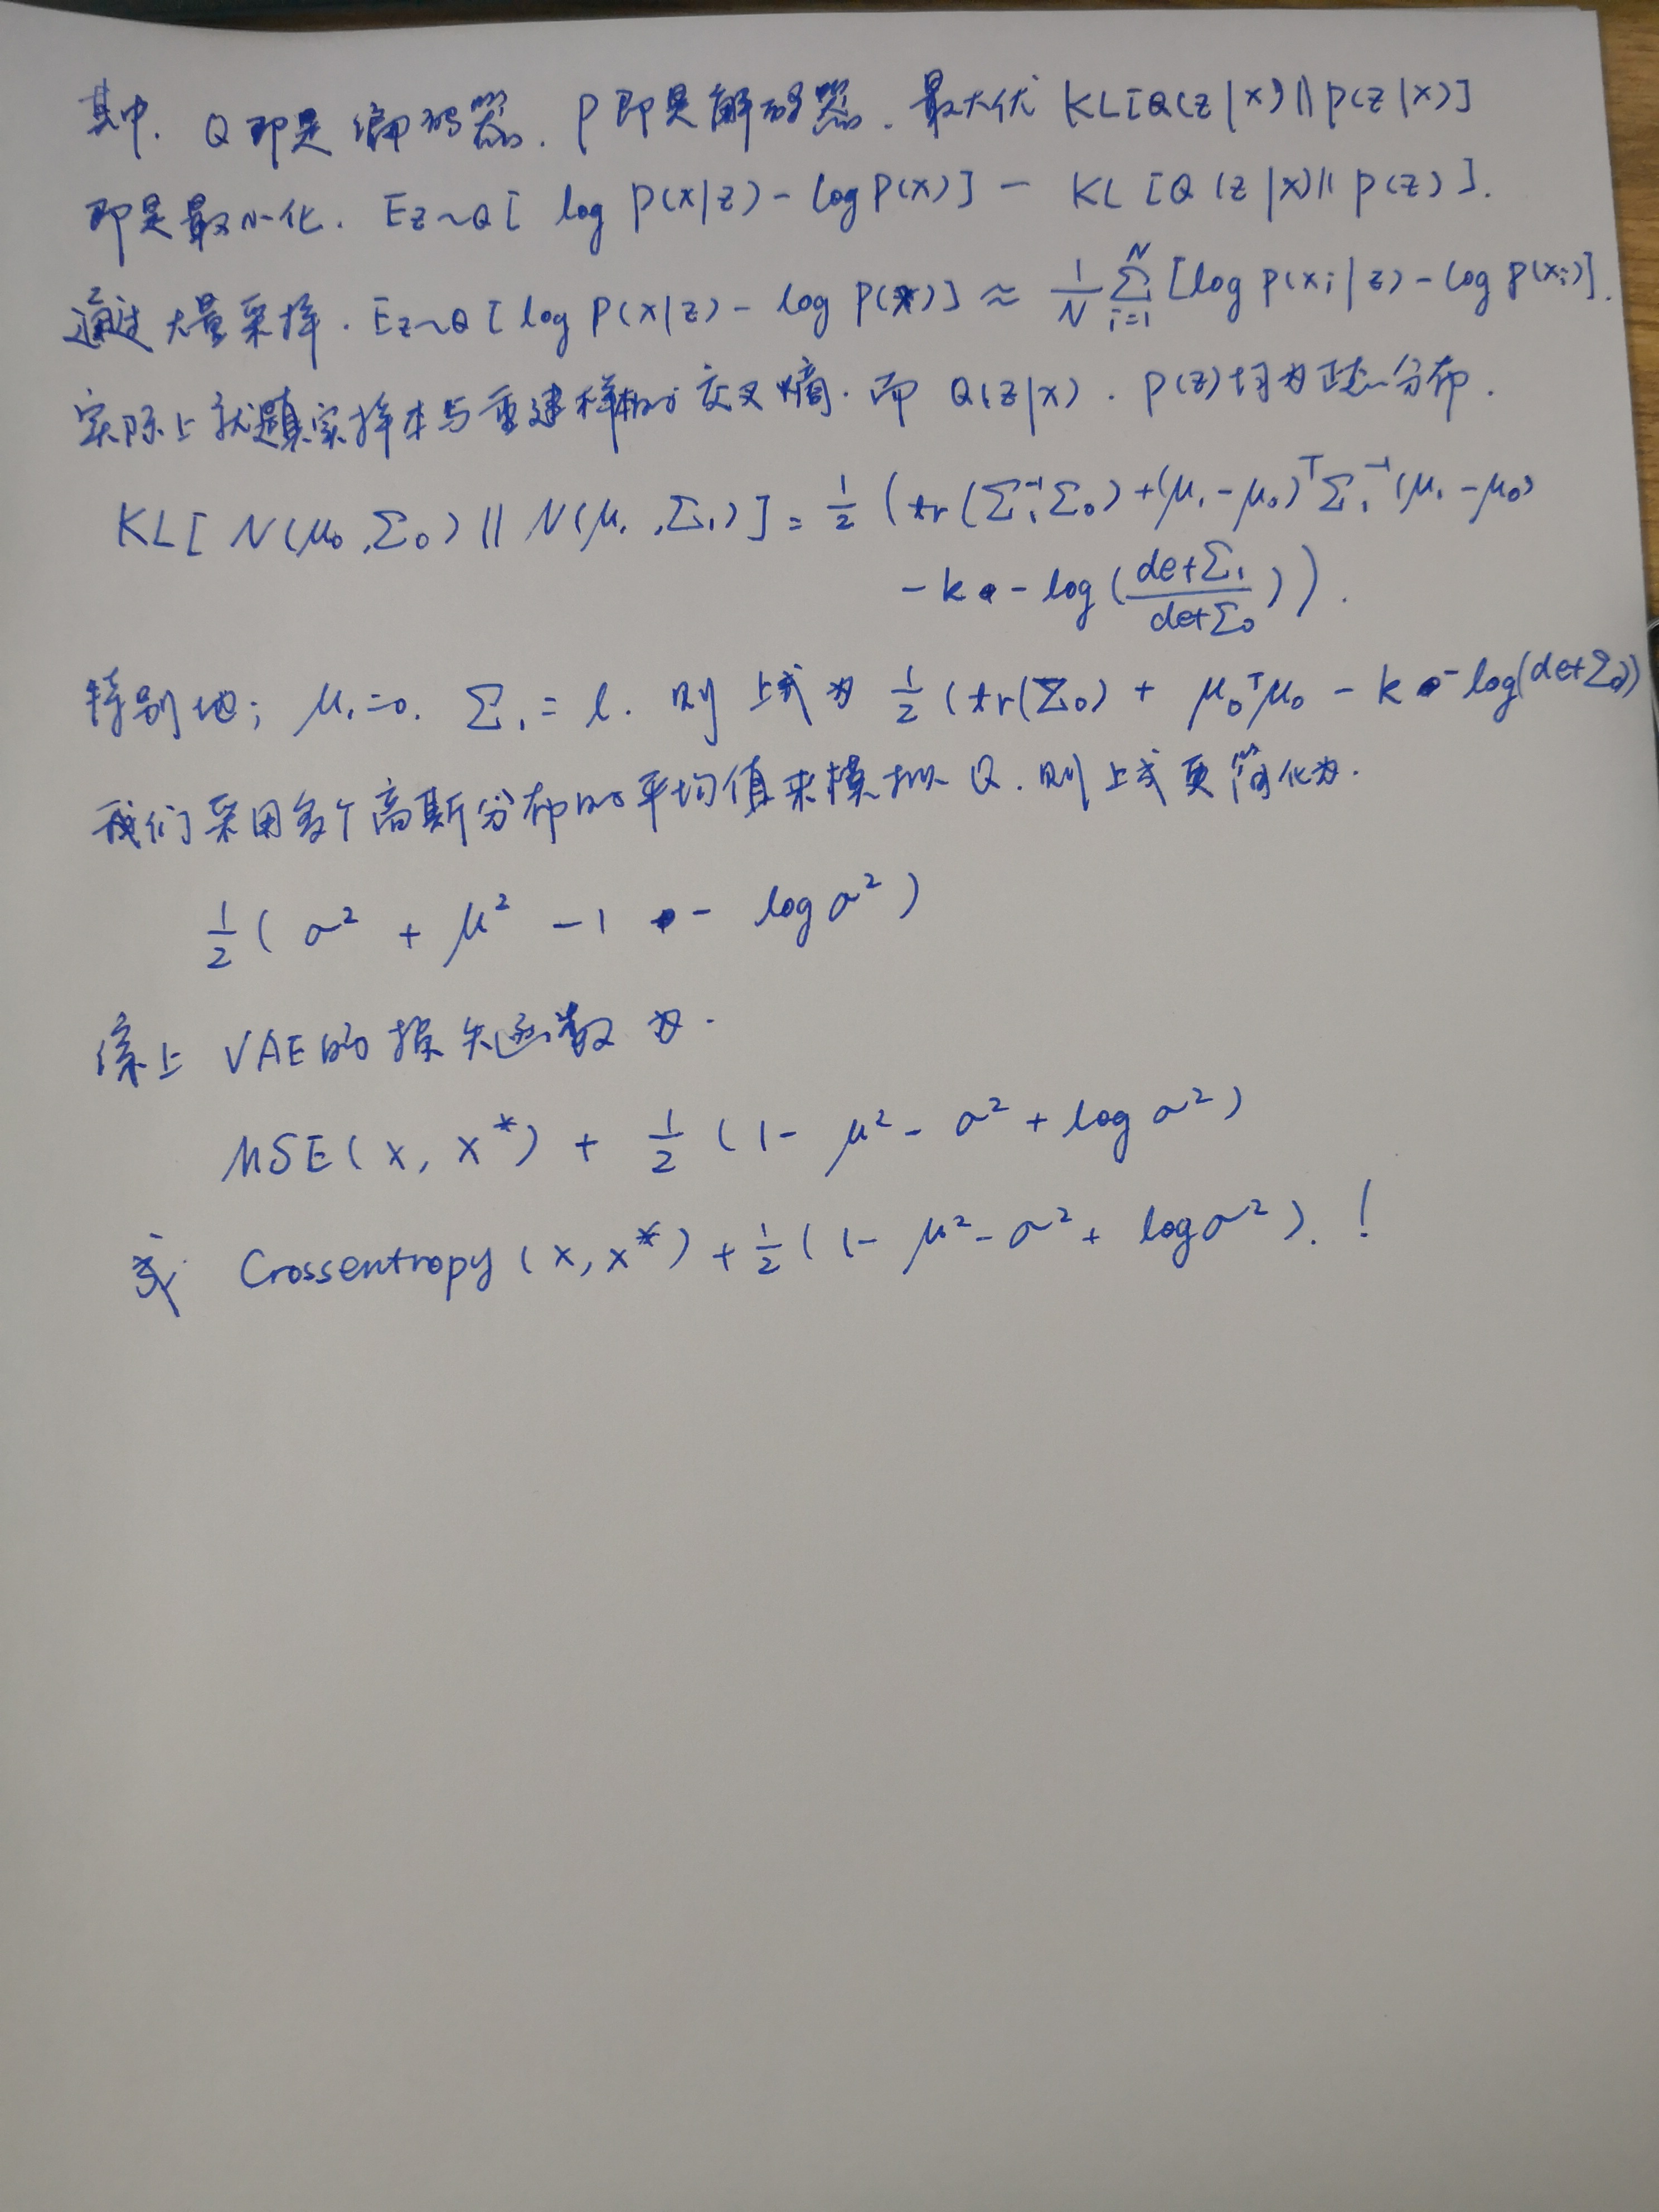 其中. Q即是编码器. P即是解码器. 最大优 KL[Q(z|x)||P(z|x)]
即是最小化. Ez~Q[ log P(x|z) - log P(x)] - KL[Q(z|x)||P(z)].
通过大量采样. Ez~Q[log P(x|z) - log P(x)] ≈ 1/N ∑_{i=1}^{N} [log P(xi|z) - log P(xi)].
实际上就是真实样本与重建样本的交叉熵. 而 Q(z|x). P(z)均为正态分布.
KL[N(μ₀,Σ₀)||N(μ₁,Σ₁)] = 1/2 (tr(Σ₁⁻¹Σ₀)+(μ₁-μ₀)ᵀΣ₁⁻¹(μ₁-μ₀)
-k - log(detΣ₁/detΣ₀)).
特别地; μ₁=0. Σ₁=I. 则上式为 1/2 (tr(Σ₀) + μ₀ᵀμ₀ - k - log(detΣ₀))
我们采用多个高斯分布的平均值来模拟Q. 则上式更简化为.
1/2 ( σ² + μ² - 1 - log σ² )
综上 VAE的损失函数为.
MSE(x, x*) + 1/2 (1- μ² - σ² + log σ²)
或 Crossentropy(x, x*) + 1/2 (1- μ² - σ² + log σ²). !